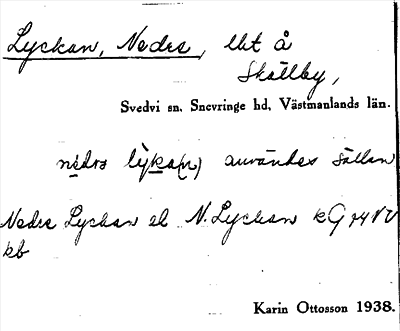 Lyckan, Nedre, lht å
Skälby,
Svedvi sn. Snevringe hd, Västmanlands län.
nedrə lỳka(n) användes sällan
Nedre Lyckan el N. Lyckan kG 74 NV
kb
Karin Ottosson 1938.